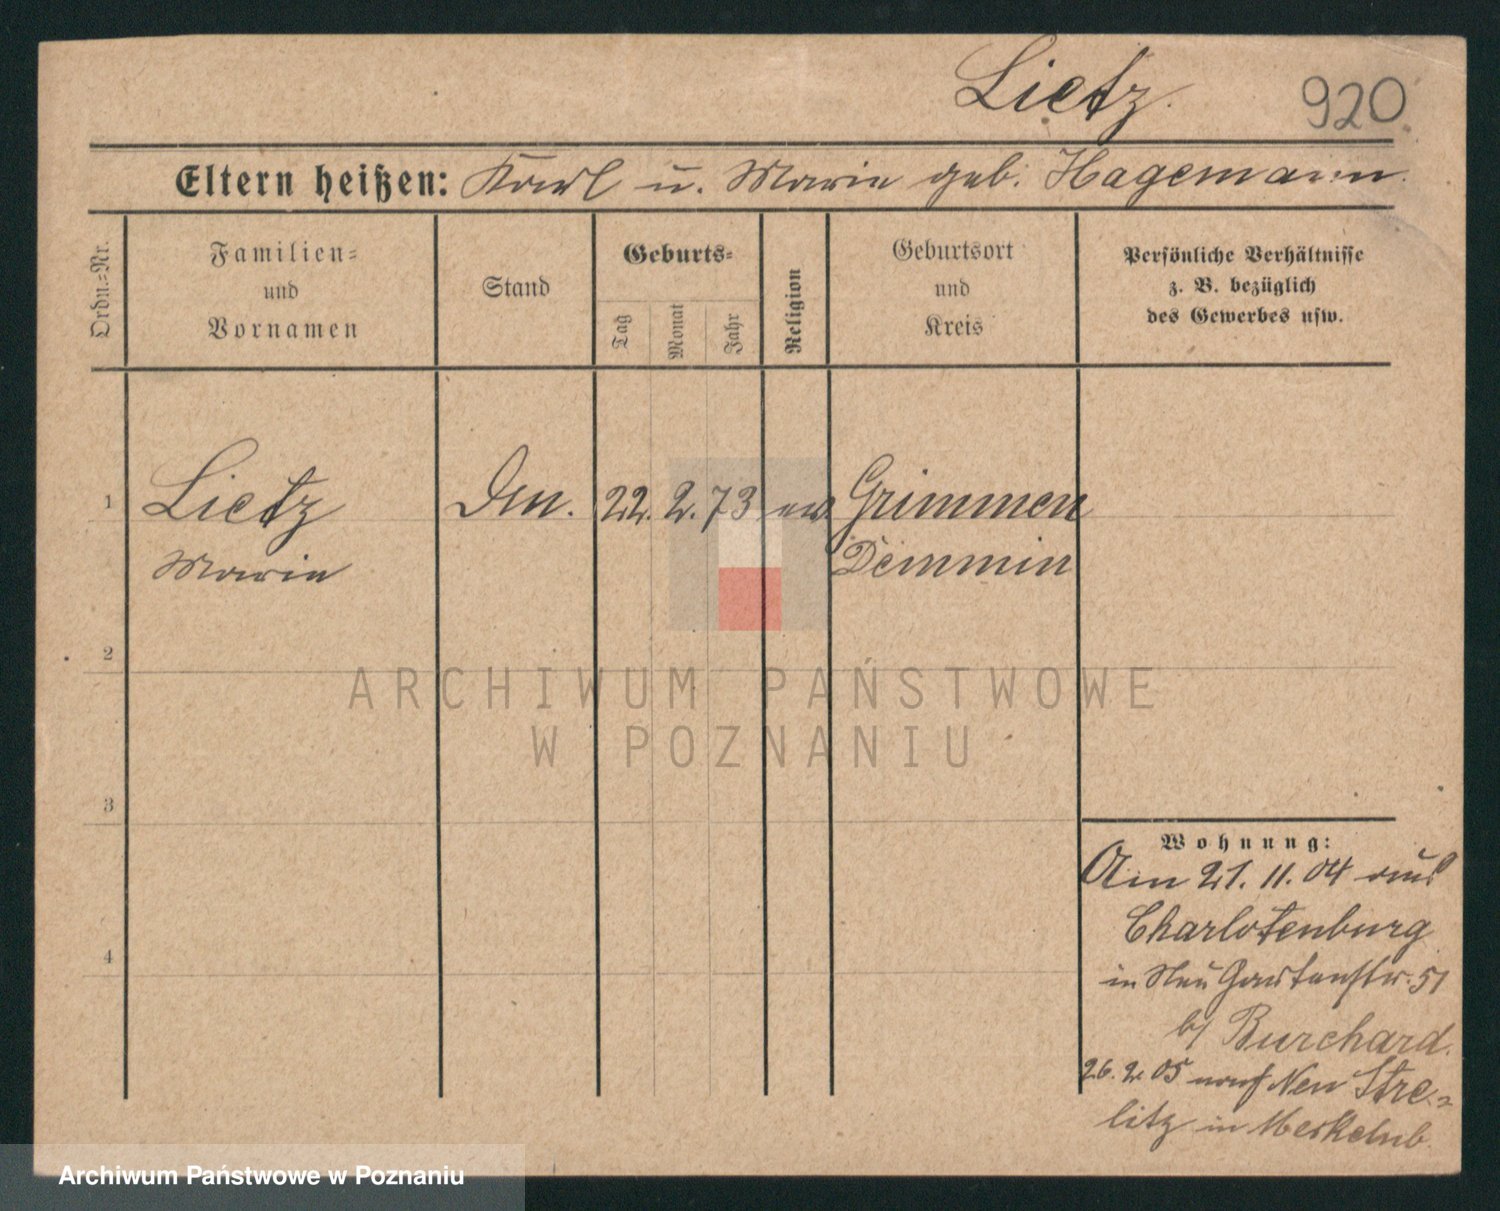 Lietz.
920.
Eltern heißen: Karl u. Marie geb. Hagemann.
Ordn.=Nr.
Familien=
und
Vornamen
Stand
Geburts=
Tag
Monat
Jahr
Religion
Geburtsort
und
Kreis
Persönliche Verhältnisse
z. B. bezüglich
des Gewerbes usw.
1 Lietz 22. 2. 73 ev. Grimmen
Marie Demmin
2
ARCHIWUM PAŃSTWOWE
W POZNANIU
3
Wohnung:
Am 21. 11. 04 aus
Charlotenburg
in Neu Gartenstr. 51
b/ Burchard.
4
26. 2. 05 nach Neu Stre=
litz in
Archiwum Państwowe w Poznaniu